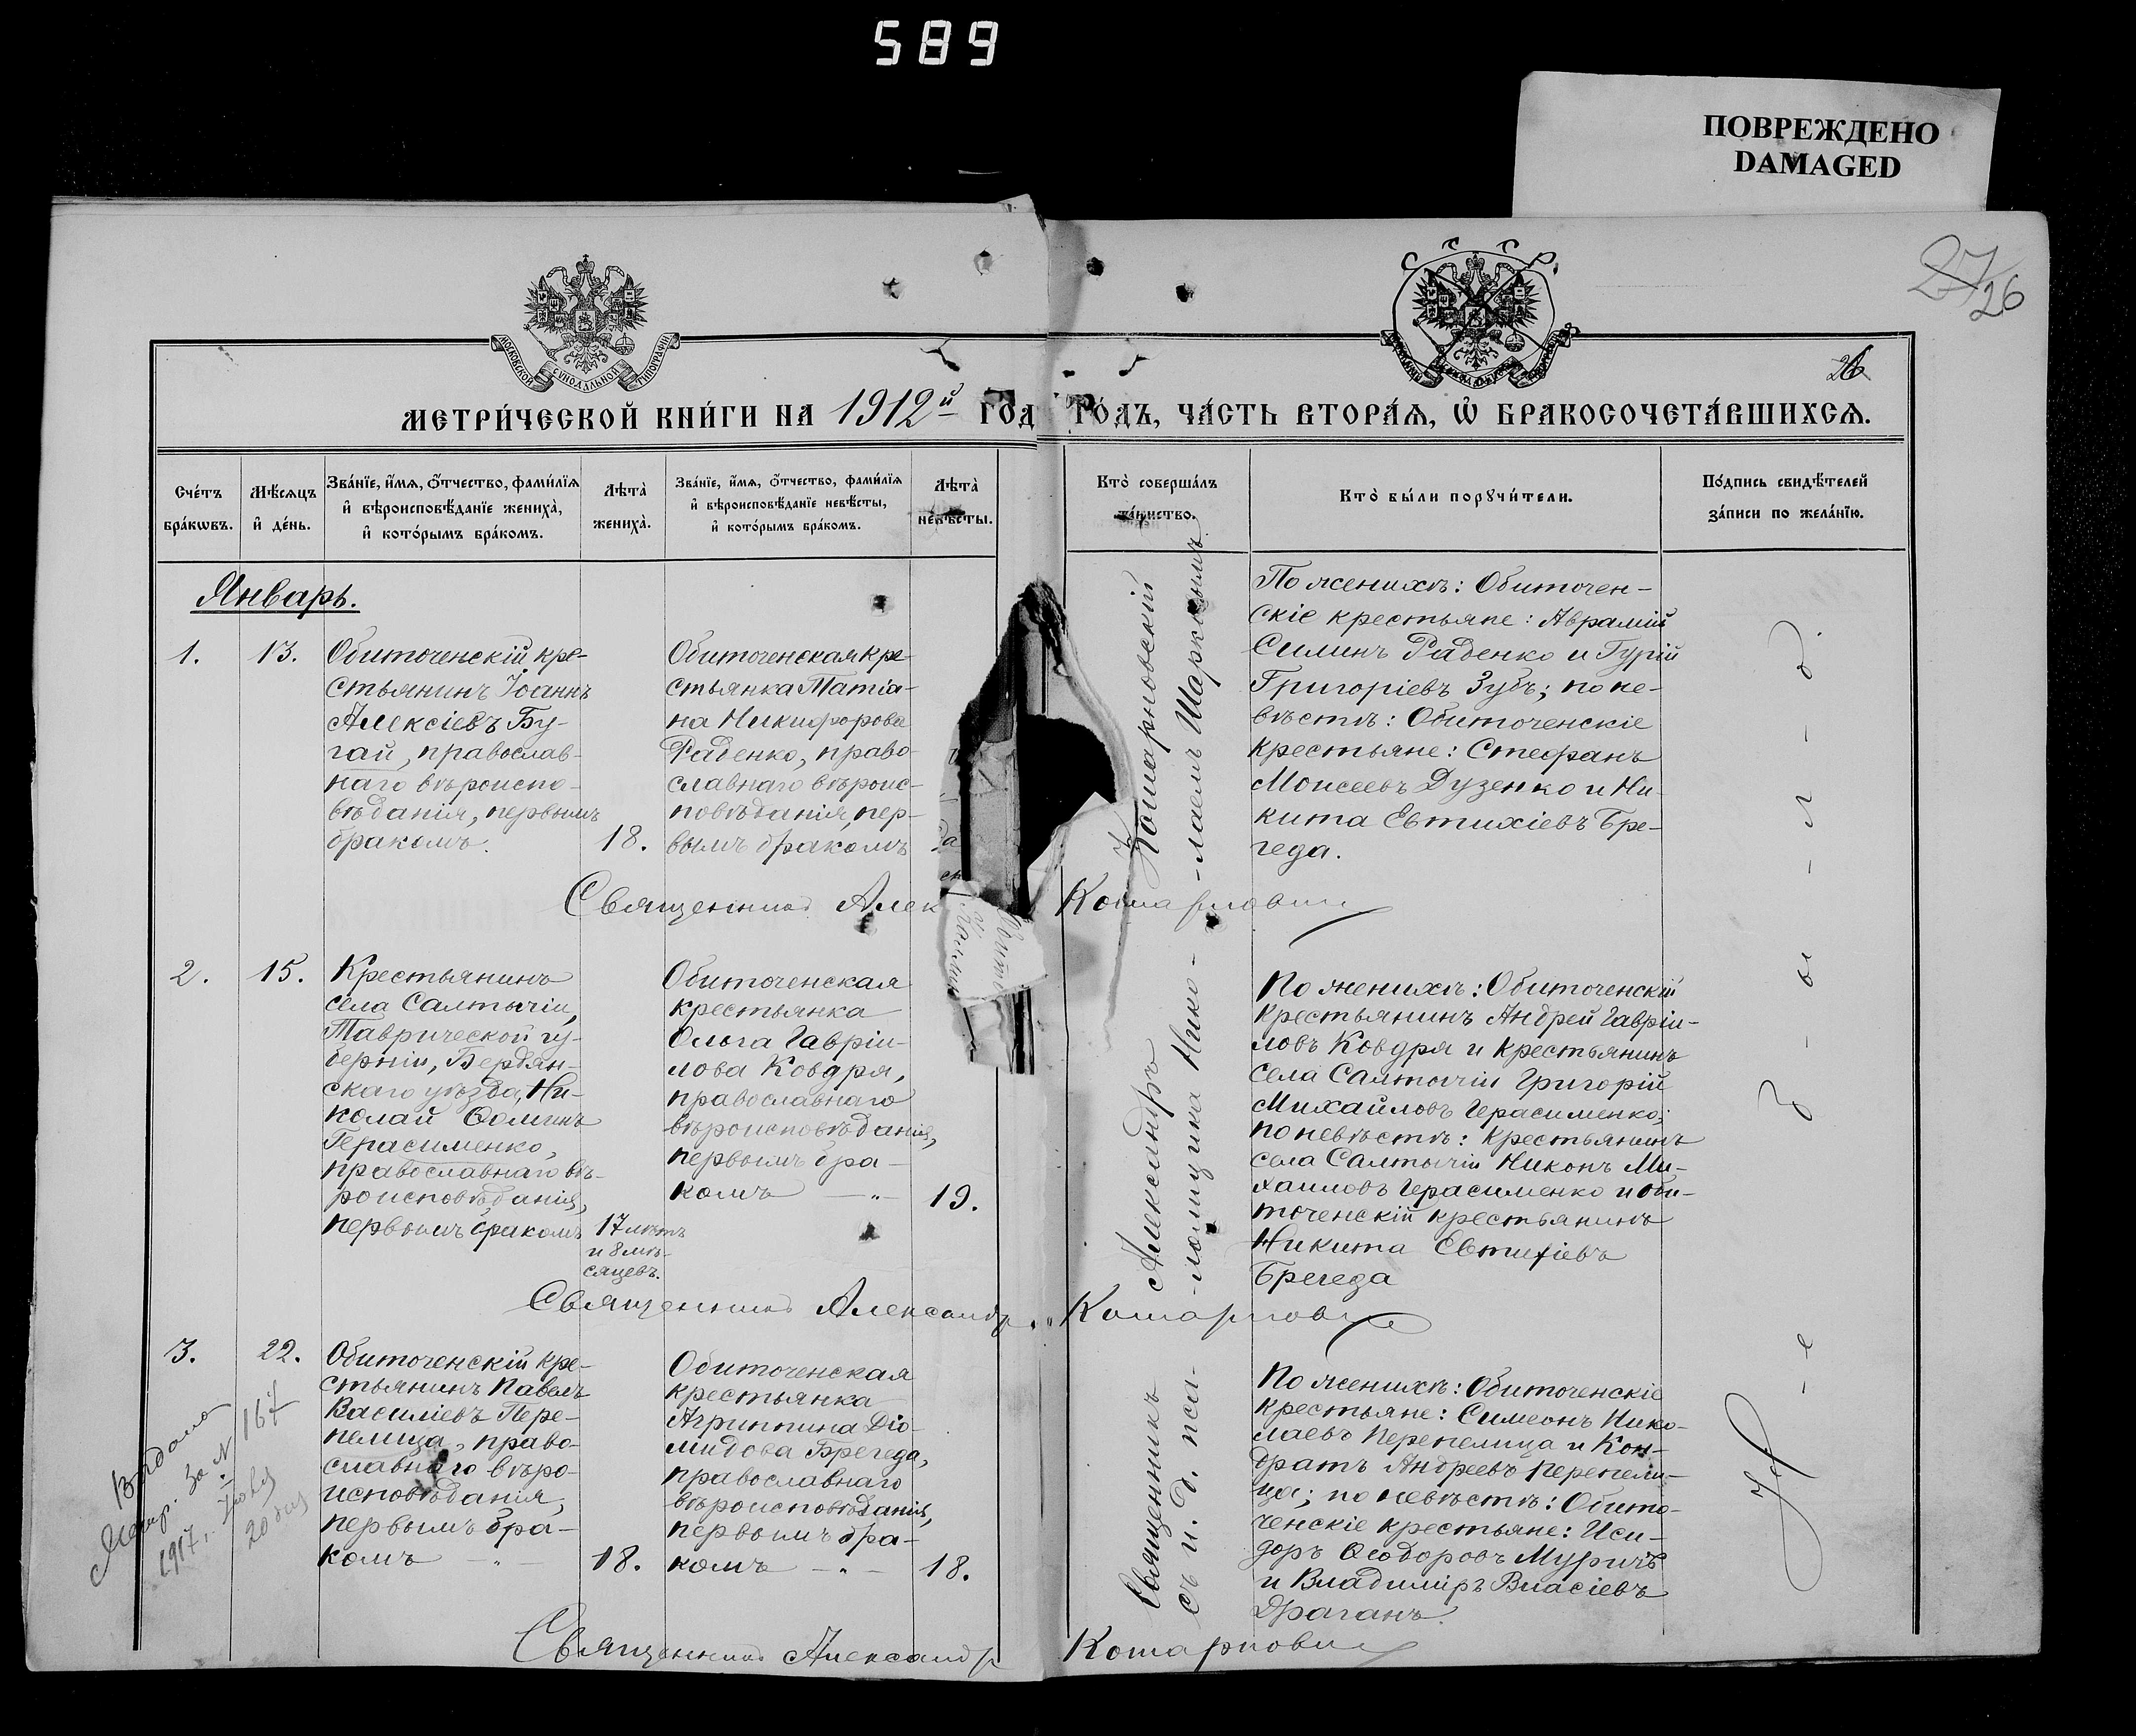 589
ПОВРЕЖДЕНО
DAMAGED
27/26
26
С С С Р.
МОСКОВСКОЙ СѴНОДАЛЬНОЙ ТИПОГРАФІИ
МЕТРИ́ЧЕСКОЙ КНИ́ГИ НА 1912й ГОД
РО́ДЪ, ЧА́СТЬ ВТОРА́Ѧ, Ѽ БРАКОСОЧЕТА́ВШИХСѦ.
Сче́тъ бра́кѡвъ.
Мѣ́сѧцъ и҆ де́нь.
Зва́нїе, и҆́мѧ, ѻ҆́тчество, фами́лїѧ и҆ вѣроисповѣ́данїе жениха̀, и҆ кото́рымъ бра́комъ.
Лѣта̀ жениха̀.
Зва́нїе, и҆́мѧ, ѻ҆́тчество, фами́лїѧ и҆ вѣроисповѣ́данїе невѣ́сты, и҆ кото́рымъ бра́комъ.
Лѣта̀ невѣ́сты.
Кто̀ соверша́лъ та́инство.
Кто̀ бы́ли порꙋчи́тели.
По́дпись свидѣ́телей за́писи по жела́нїю.
Январь.
1.
13.
Обиточенскій кре-
стьянинъ Іоаннъ
Алексіевъ Бу-
гай, православ-
наго вѣроиспо-
вѣданія, первымъ
бракомъ.
18.
Обиточенская кре-
стьянка Татіа-
на Никифорова
Раденко, право-
славнаго вѣроис-
повѣданія, пер-
вымъ бракомъ
По женихѣ: Обиточен-
скіе крестьяне: Аврамій
Силинъ Раденко и Гурій
Григоріевъ Зубъ; по не-
вѣстѣ: Обиточенскіе
крестьяне: Стефанъ
Моисеевъ Дузенко и Ни-
кита Евтихіевъ Бре-
геда.
Священникъ Алек
Кошарновскій
2.
15.
Крестьянинъ
села Салтычіи,
Таврической гу-
берніи, Бердян-
скаго уѣзда, Ни-
колай Ѳоминъ
Герасименко,
православнаго вѣ-
роисповѣданія,
первымъ бракомъ
17 лѣтъ
и 8 мѣ-
сяцевъ.
Обиточенская
крестьянка
Ольга Гавріи-
лова Ковдря,
православнаго
вѣроисповѣданія,
первымъ бра-
комъ — „ —
19.
По женихѣ: Обиточенскій
крестьянинъ Андрей Гавріи-
ловъ Ковдря и крестьянинъ
села Салтычіи Григорій
Михайловъ Герасименко;
по невѣстѣ: крестьянинъ
села Салтычіи Никонъ Ми-
хаиловъ Герасименко и оби-
точенскій крестьянинъ
Никита Евтихіевъ
Брегеда
Священникъ Александръ
Кошарновскій
3.
22.
Обиточенскій кре-
стьянинъ Павелъ
Василіевъ Пере-
пелица, право-
славнаго вѣро-
исповѣданія,
первымъ бра-
комъ — „ —
18.
Обиточенская
крестьянка
Агриппина Діо-
мидова Брегеда,
православнаго
вѣроисповѣданія,
первымъ бра-
комъ — „ —
18.
По женихѣ: Обиточенскіе
крестьяне: Симеонъ Нико-
лаевъ Перепелица и Кон-
дратъ Андреевъ Перепели-
ца; по невѣстѣ: Обито-
ченскіе крестьяне: Иси-
доръ Ѳеодоровъ Муричъ
и Владиміръ Власіевъ
Драганъ.
Священникъ Александръ
Кошарновскій
Священникъ Александръ Кошарновскій
съ и. д. псаломщика Николаемъ Шаркевымъ
Не - б - ы - л - о.
Выдана
Метр. за № 167
1917 г.
20 дня